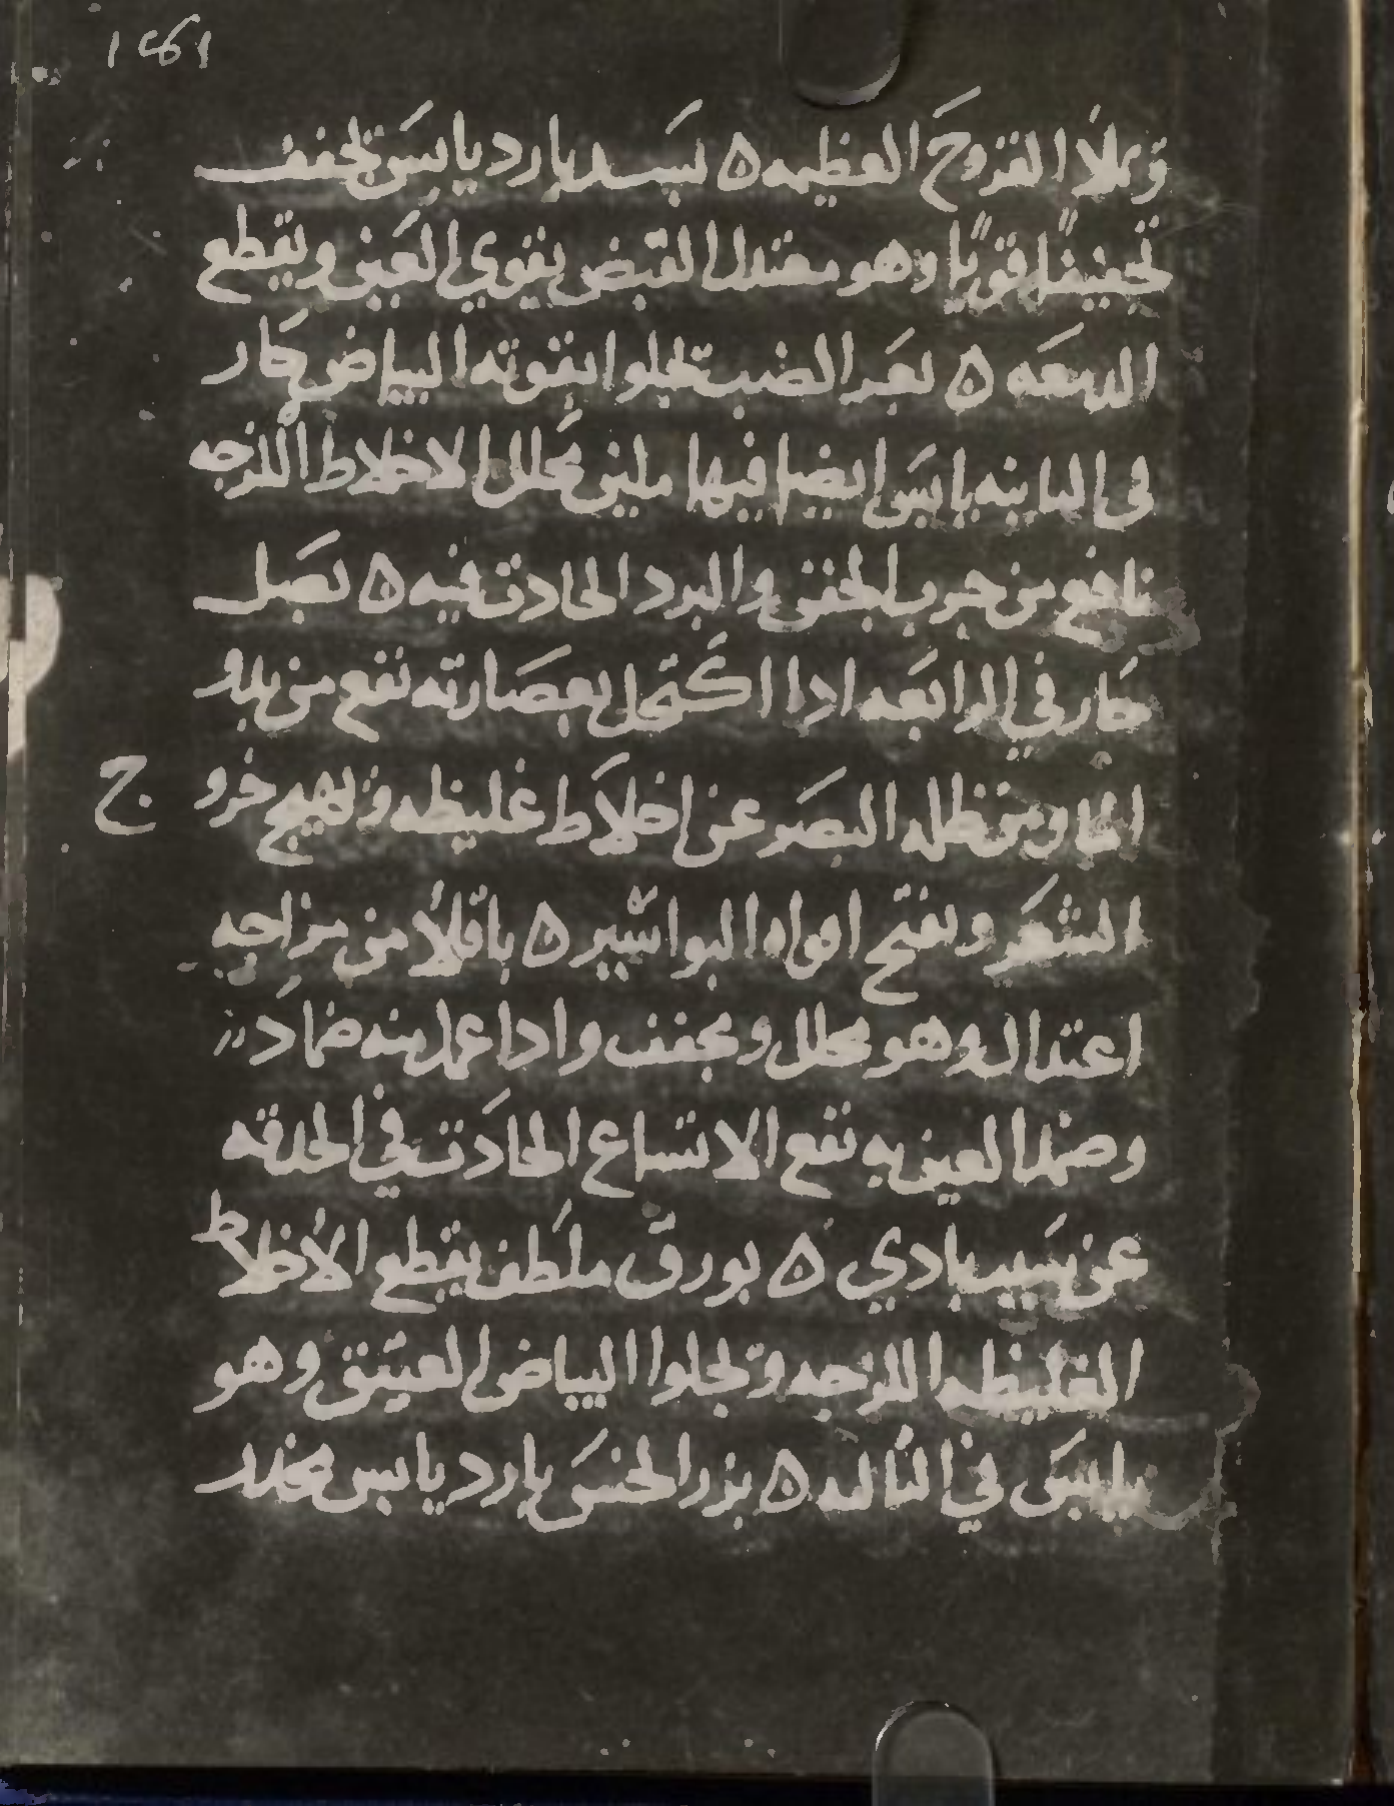 وتملا القروح العظيمه ه بسد بارد يابس تجفف
تجفيفًا قويًا وهو معتدل القبض يقوي العين ويقطع
الدمعه ه بعر الضب تجلوا بقوته البياض حار
في الثانيه يابس ايضا فيها ملين محلل الاخلاط اللزجه
نافع من جرب الجفن والبرد الحادث فيه ه بصل
حار في الرابعه ادا اكتحل بعصارته نفع من بدو
الما ومن ظلمه البصر عن اخلاط غليظه وتهيج خرو ج
الشعر وتفتح افواه البواسير ه باقلا من مزاجه
اعتدال وهو محلل ويجفف وادا عمل منه ضماد
وضمد العين به نفع الاتساع الحادث في الحدقه
عن سبب بادي ه بورق ملطف يقطع الاخلاط
الغليظه اللزجه وتجلوا البياض العتيق وهو
يابس في الثالثه ه بزر الخس بارد يابس مخدر